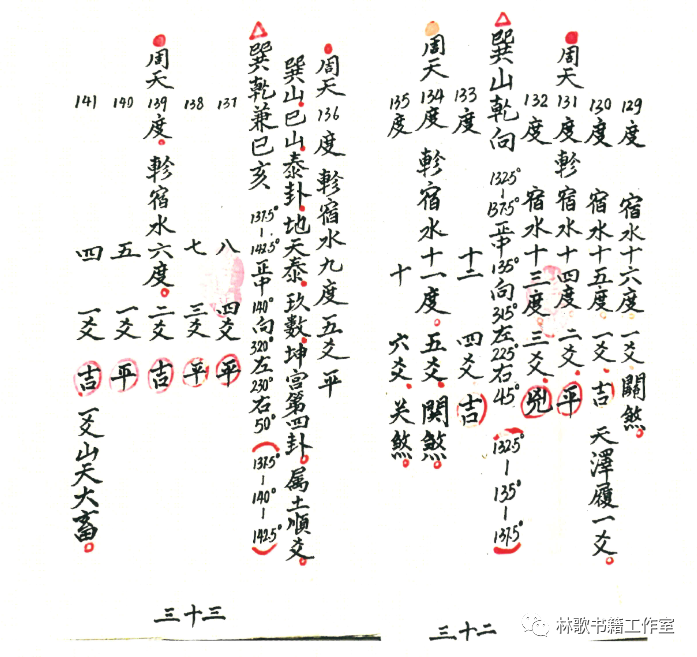 129度 宿水十六度。一爻 關煞。
130度 宿水十五度。一爻 吉 天澤履一爻。
周天131度 軫宿水十四度 二爻 平
132度 宿水十三度 三爻 兇
巽山乾向 132.5°-137.5° 正中135°向315°左225°右45°(132.5°-135°-137.5°)
133度 十二 四爻 吉
周天134度 軫宿水十一度。五爻 関煞。
135度 十 六爻 关煞。
三十二
周天136度 軫宿水九度 五爻 平
巽山.巳山泰卦.地天泰.玖數.坤宫第四卦.属土順爻。
巽乾兼巳亥 137.5°-142.5°正中140°向320°左230°右50°(137.5°-140°-142.5°)
137 八 四爻 平
138 七 三爻 平
周天139度.軫宿水六度。二爻 吉
140 五 一爻 平
141 四 一爻 吉 一爻山天大畜。
三十三
林歌书籍工作室